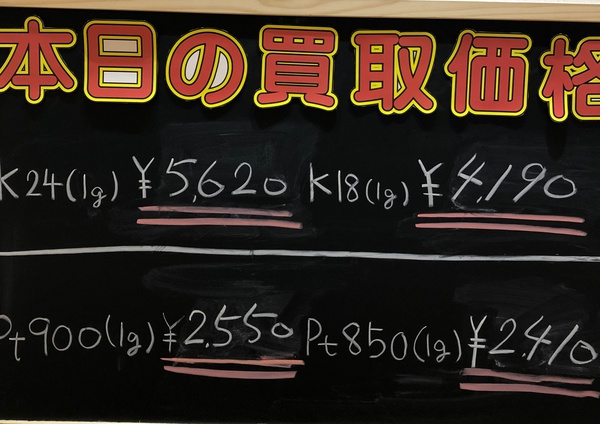 本日の買取価格
K24(1g) ¥5,620 K18(1g) ¥4,190
Pt900(1g) ¥2,550 Pt850(1g) ¥2,410